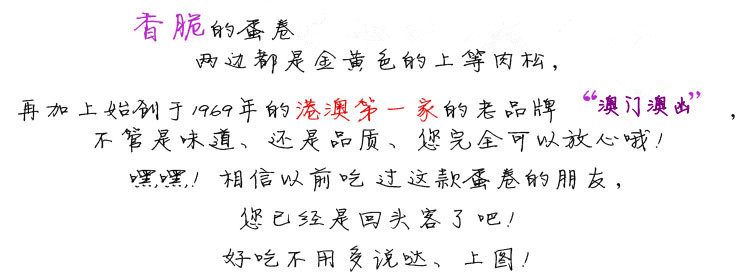 香脆的蛋卷
两边都是金黄色的上等肉松,
再加上始创于1969年的港澳第一家的老品牌 “澳门澳凼”,
不管是味道、还是品质、您完全可以放心哦!
嘿,嘿,! 相信以前吃过这款蛋卷的朋友,
您已经是回头客了吧!
好吃不用多说哒、上图!